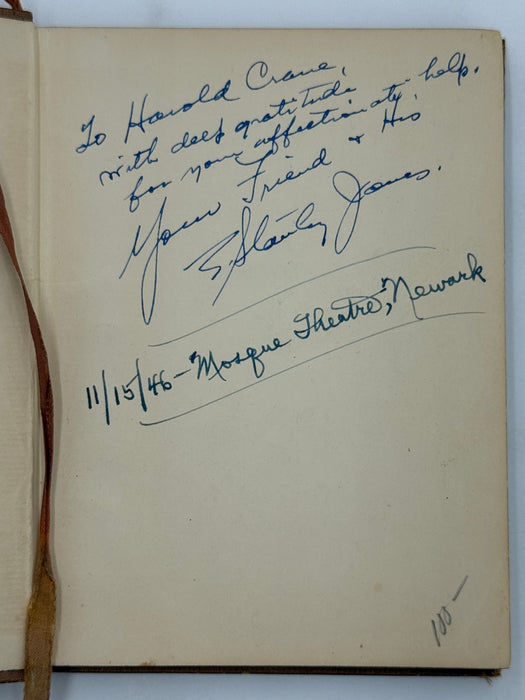 To Harold Crane,
with deep gratitude
for your affectionate help.
Your Friend & His
E. Stanley Jones.
11/15/46 – "Mosque Theatre", Newark
100–